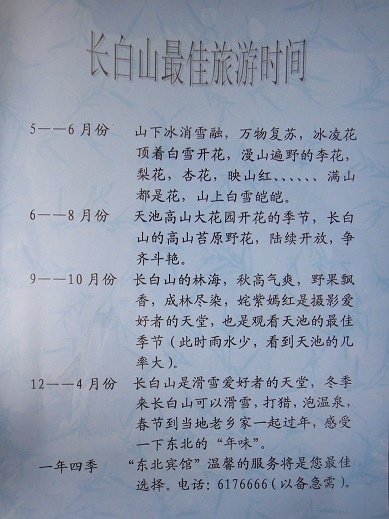 长白山最佳旅游时间
5——6月份 山下冰消雪融，万物复苏，冰凌花
顶着白雪开花，漫山遍野的李花，
梨花，杏花，映山红、、、、、、满山
都是花，山上白雪皑皑。
6——8月份 天池高山大花园开花的季节，长白
山的高山苔原野花，陆续开放，争
齐斗艳。
9——10月份 长白山的林海，秋高气爽，野果飘
香，成林尽染，姹紫嫣红是摄影爱
好者的天堂，也是观看天池的最佳
季节（此时雨水少，看到天池的几
率大）。
12——4月份 长白山是滑雪爱好者的天堂，冬季
来长白山可以滑雪，打猎，泡温泉，
春节到当地老乡家一起过年，感受
一下东北的“年味”。
一年四季 “东北宾馆”温馨的服务将是您最佳
选择。电话：6176666（以备急需）。